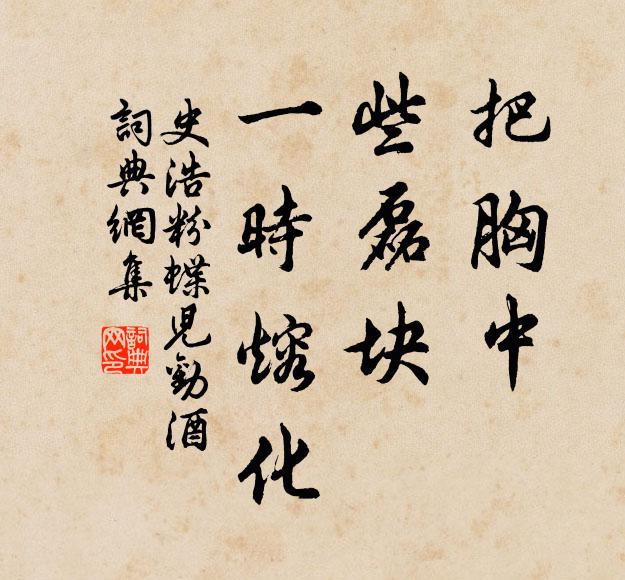 把胸中
些磊块
一時熔化
史浩粉蝶児勸酒
詞典網集
詞典网印